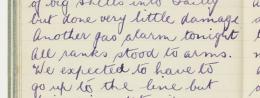 of big shells into Bailly
but done very little damage
Another gas alarm tonight
all ranks stood to arms.
We expected to have to
go up to the line but